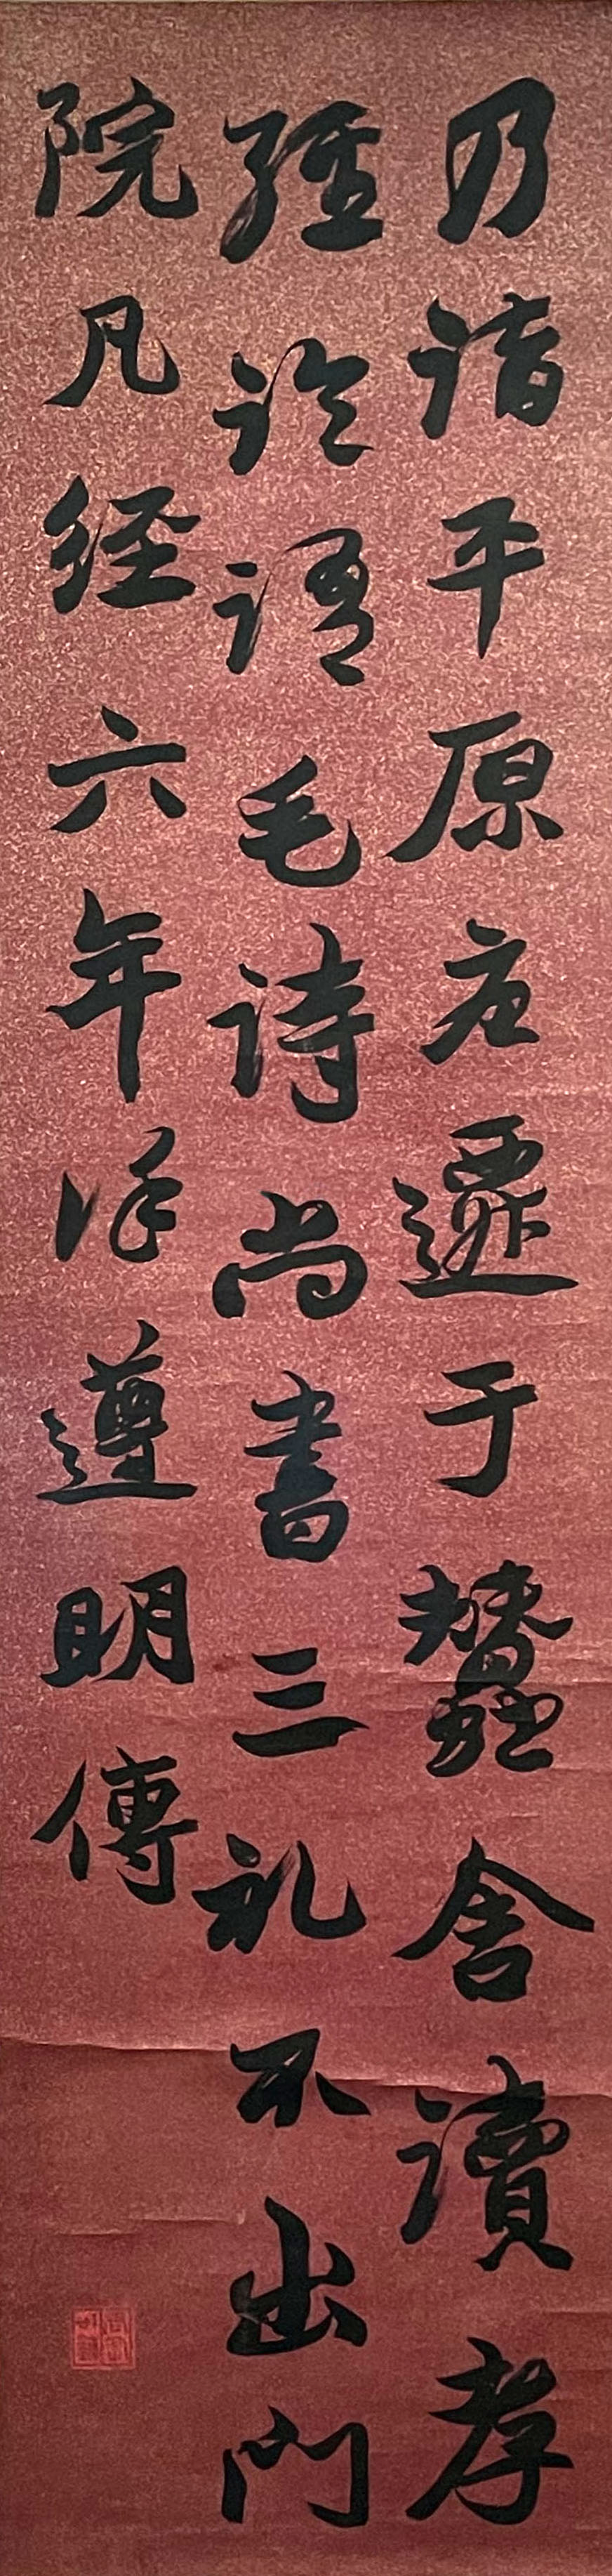 乃詣平原唐遷于蠶舍讀孝
經論語毛詩尚書三礼不出門
院凡經六年徐遵明傳